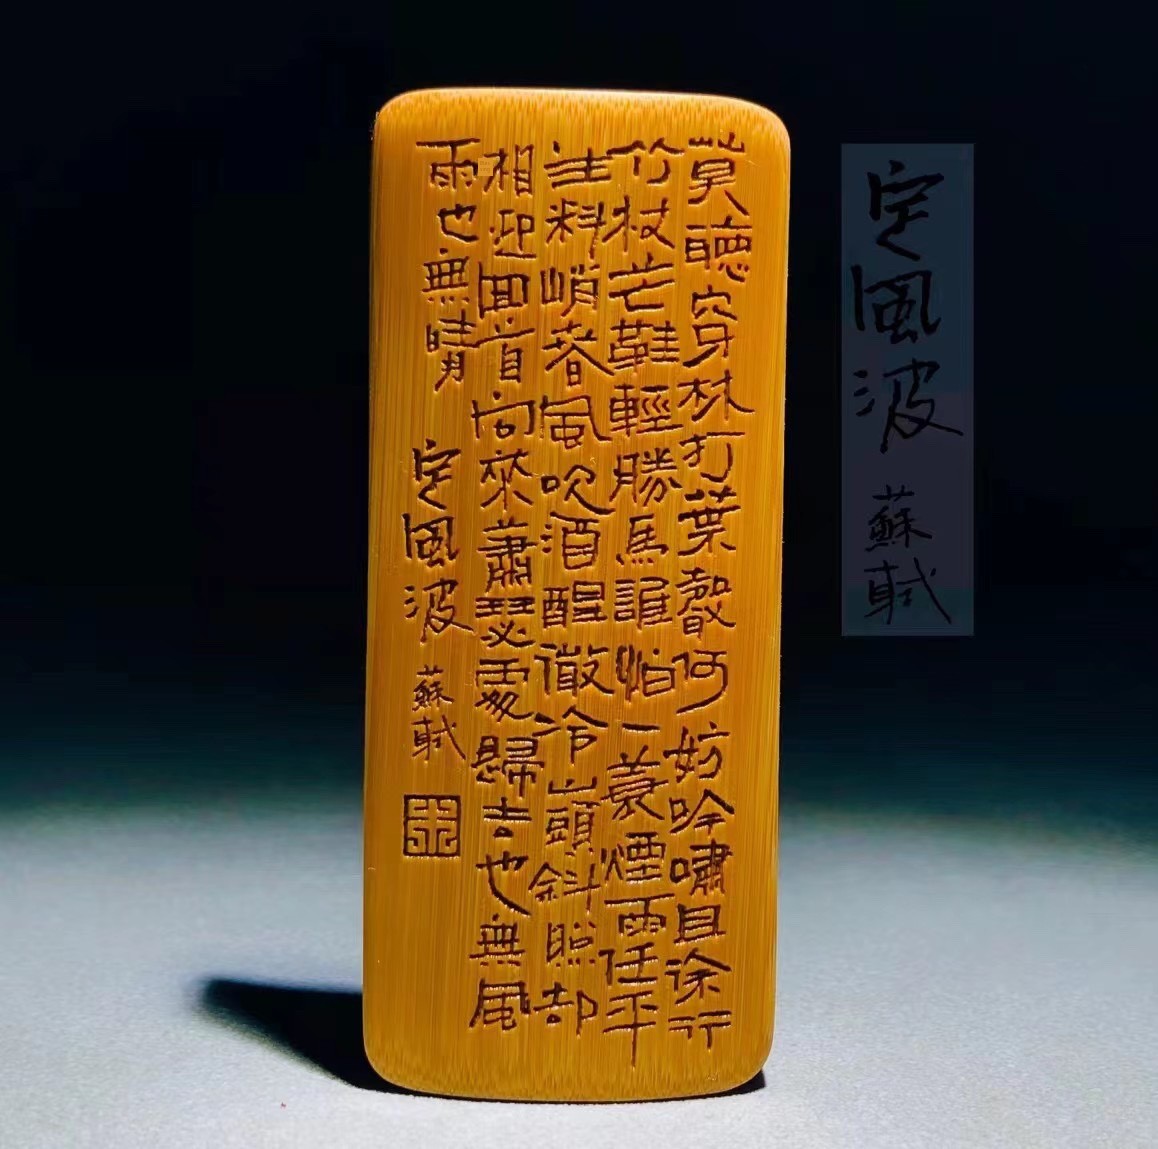 莫聽穿林打葉聲何妨吟嘯且徐行
竹杖芒鞋輕勝馬誰怕一蓑煙雨任平
生料峭春風吹酒醒微冷山頭斜照却
相迎囬首向來蕭瑟處歸去也無風
雨也無晴
定風波 蘇軾
定風波 蘇軾